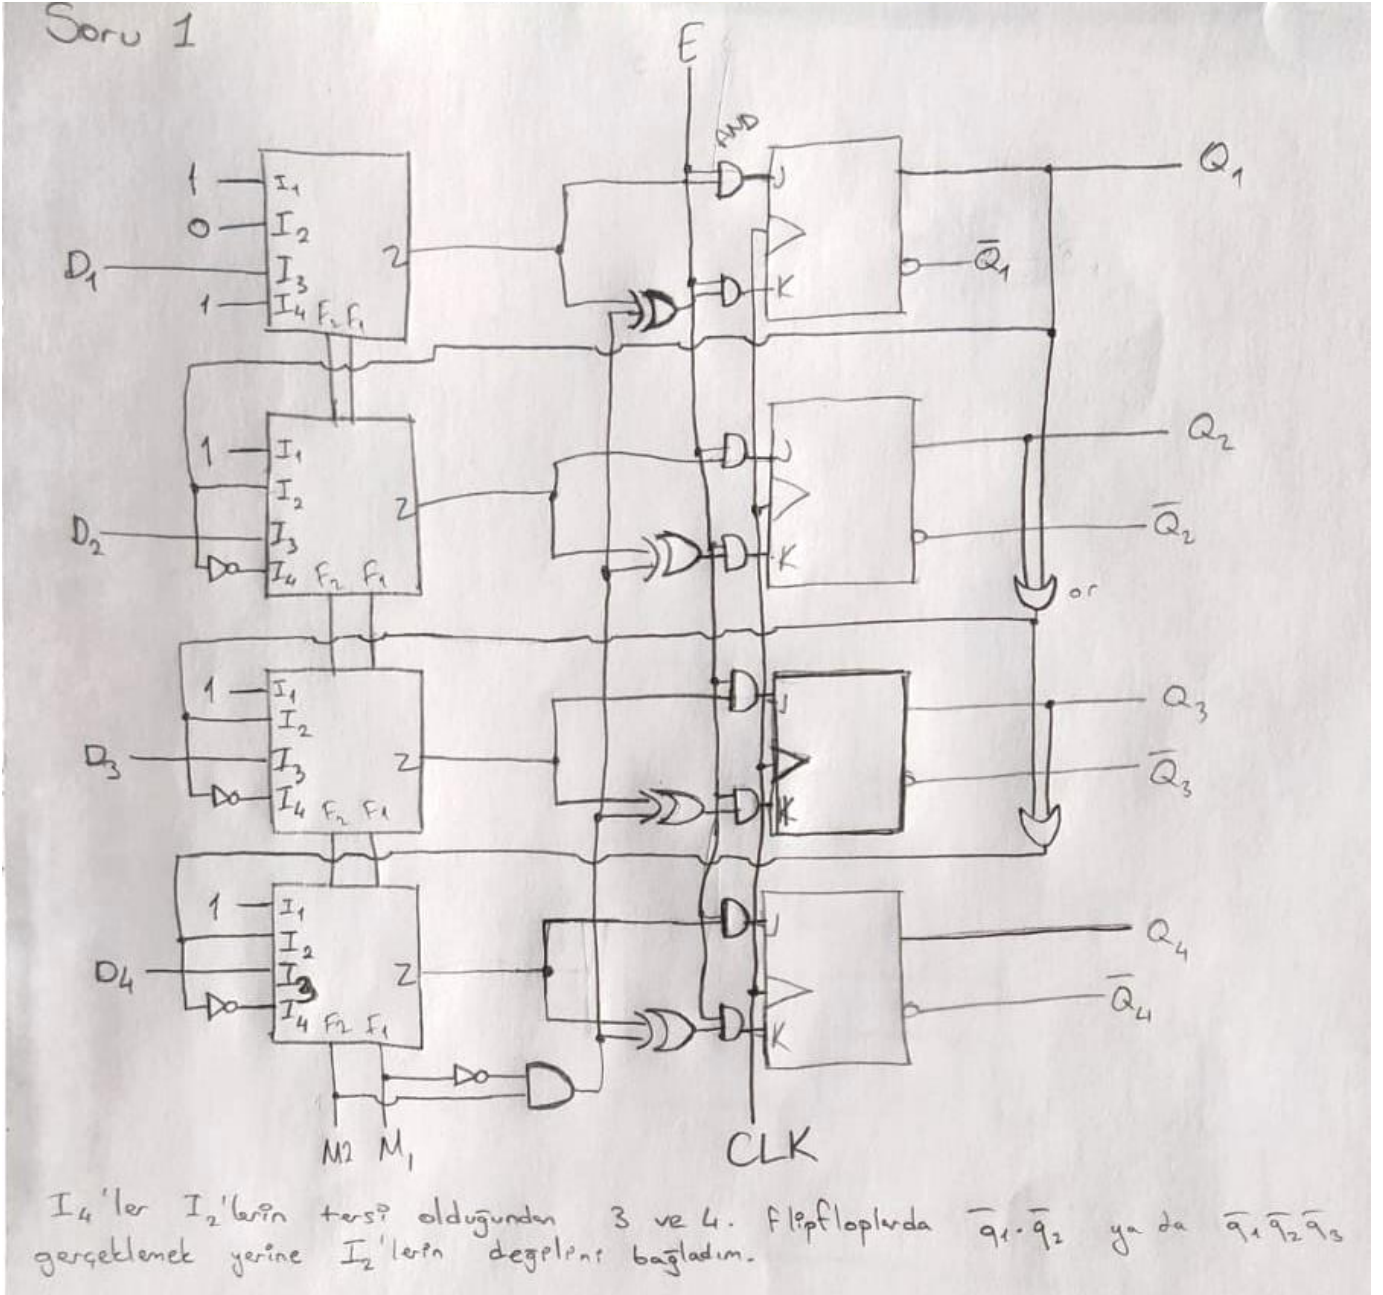 Soru 1
E
AND
1 I₁
0 I₂
D₁ I₃
1 I₄ F₂ F₁
Z
J
K
Q₁
Q̅₁
1 I₁
I₂
D₂ I₃
I₄ F₂ F₁
Z
J
K
Q₂
Q̅₂
or
1 I₁
I₂
D₃ I₃
I₄ F₂ F₁
Z
J
K
Q₃
Q̅₃
1 I₁
I₂
D₄ I₃
I₄ F₂ F₁
Z
J
K
Q₄
Q̅₄
M2 M₁
CLK
I₄'ler I₂'lerin tersi olduğundan 3 ve 4. flipfloplarda q̅₁.q̅₂ ya da q̅₁q̅₂q̅₃
gerçeklemek yerine I₂'lerin değelini bağladım.